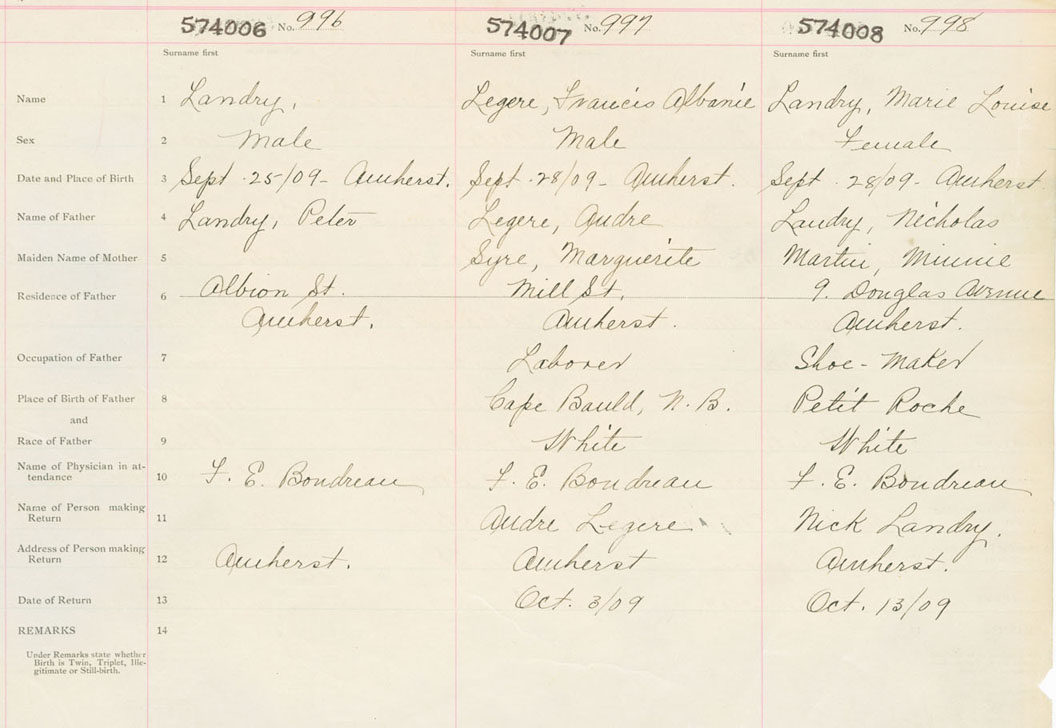 574006 No. 996 574007 No. 997 574008 No. 998
Surname first Surname first Surname first
Name 1 Landry, Legere, Francis Albanie Landry, Marie Louise
Sex 2 Male Male Female
Date and Place of Birth 3 Sept. 25/09 - Amherst. Sept. 28/09 - Amherst. Sept. 28/09 - Amherst
Name of Father 4 Landry, Peter Legere, Andre Landry, Nicholas
Maiden Name of Mother 5 Syre, Marguerite Martin, Minnie
Residence of Father 6 Albion St. Mill St. 9. Douglas Avenue
Amherst. Amherst. Amherst.
Occupation of Father 7 Laborer Shoe-Maker
Place of Birth of Father 8 Cape Bauld, N. B. Petit Roche
and
Race of Father 9 White White
Name of Physician in at-
tendance 10 F. E. Boudreau F. E. Boudreau F. E. Boudreau
Name of Person making
Return 11 Andre Legere Nick Landry.
Address of Person making
Return 12 Amherst. Amherst Amherst.
Date of Return 13 Oct. 3/09 Oct. 13/09
REMARKS 14
Under Remarks state whether
Birth is Twin, Triplet, Ille-
gitimate or Still-birth.